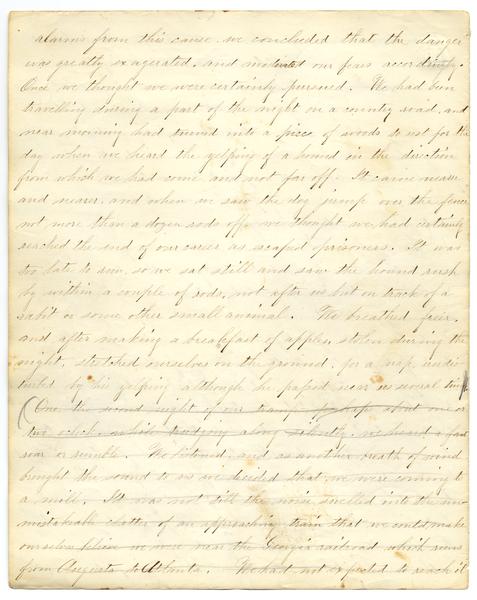 alarms from this cause we concluded that the danger
was greatly exagerated, and moderated our fears accordingly.
Once we thought we were certainly pursued. We had been
travelling during a part of the night on a country road, and
near morning had turned into a piece of woods to rest for the
day when we heard the yelping of a hound in the direction
from which we had come and not far off. It came nearer
and nearer, and when we saw the dog jump over the fence
not more than a dozen rods off, we thought we had certainly
reached the end of our career as escaped prisoners. It was
too late to run, so we sat still and saw the hound rush
by within a couple of rods, not after us but on track of a
rabit or some other small animal. We breathed freer,
and after making a breakfast of apples, stolen during the
night, stretched ourselves on the ground, for a nap, undis
turbed by his yelping although he passed near us several times
(One the second night of our tramp, perhaps about one or
two oclock, while trudging along silently, we heard a faint
roar or rumble. We listened, and as another breath of wind
brought the sound to us we decided that we were coming to
a mill. It was not till the noise swelled into the un
mistakable clatter of an approaching train that we could make
ourselves believe we were near the Georgia railroad which runs
from Augusta to Atlanta. We had not expected to reach it